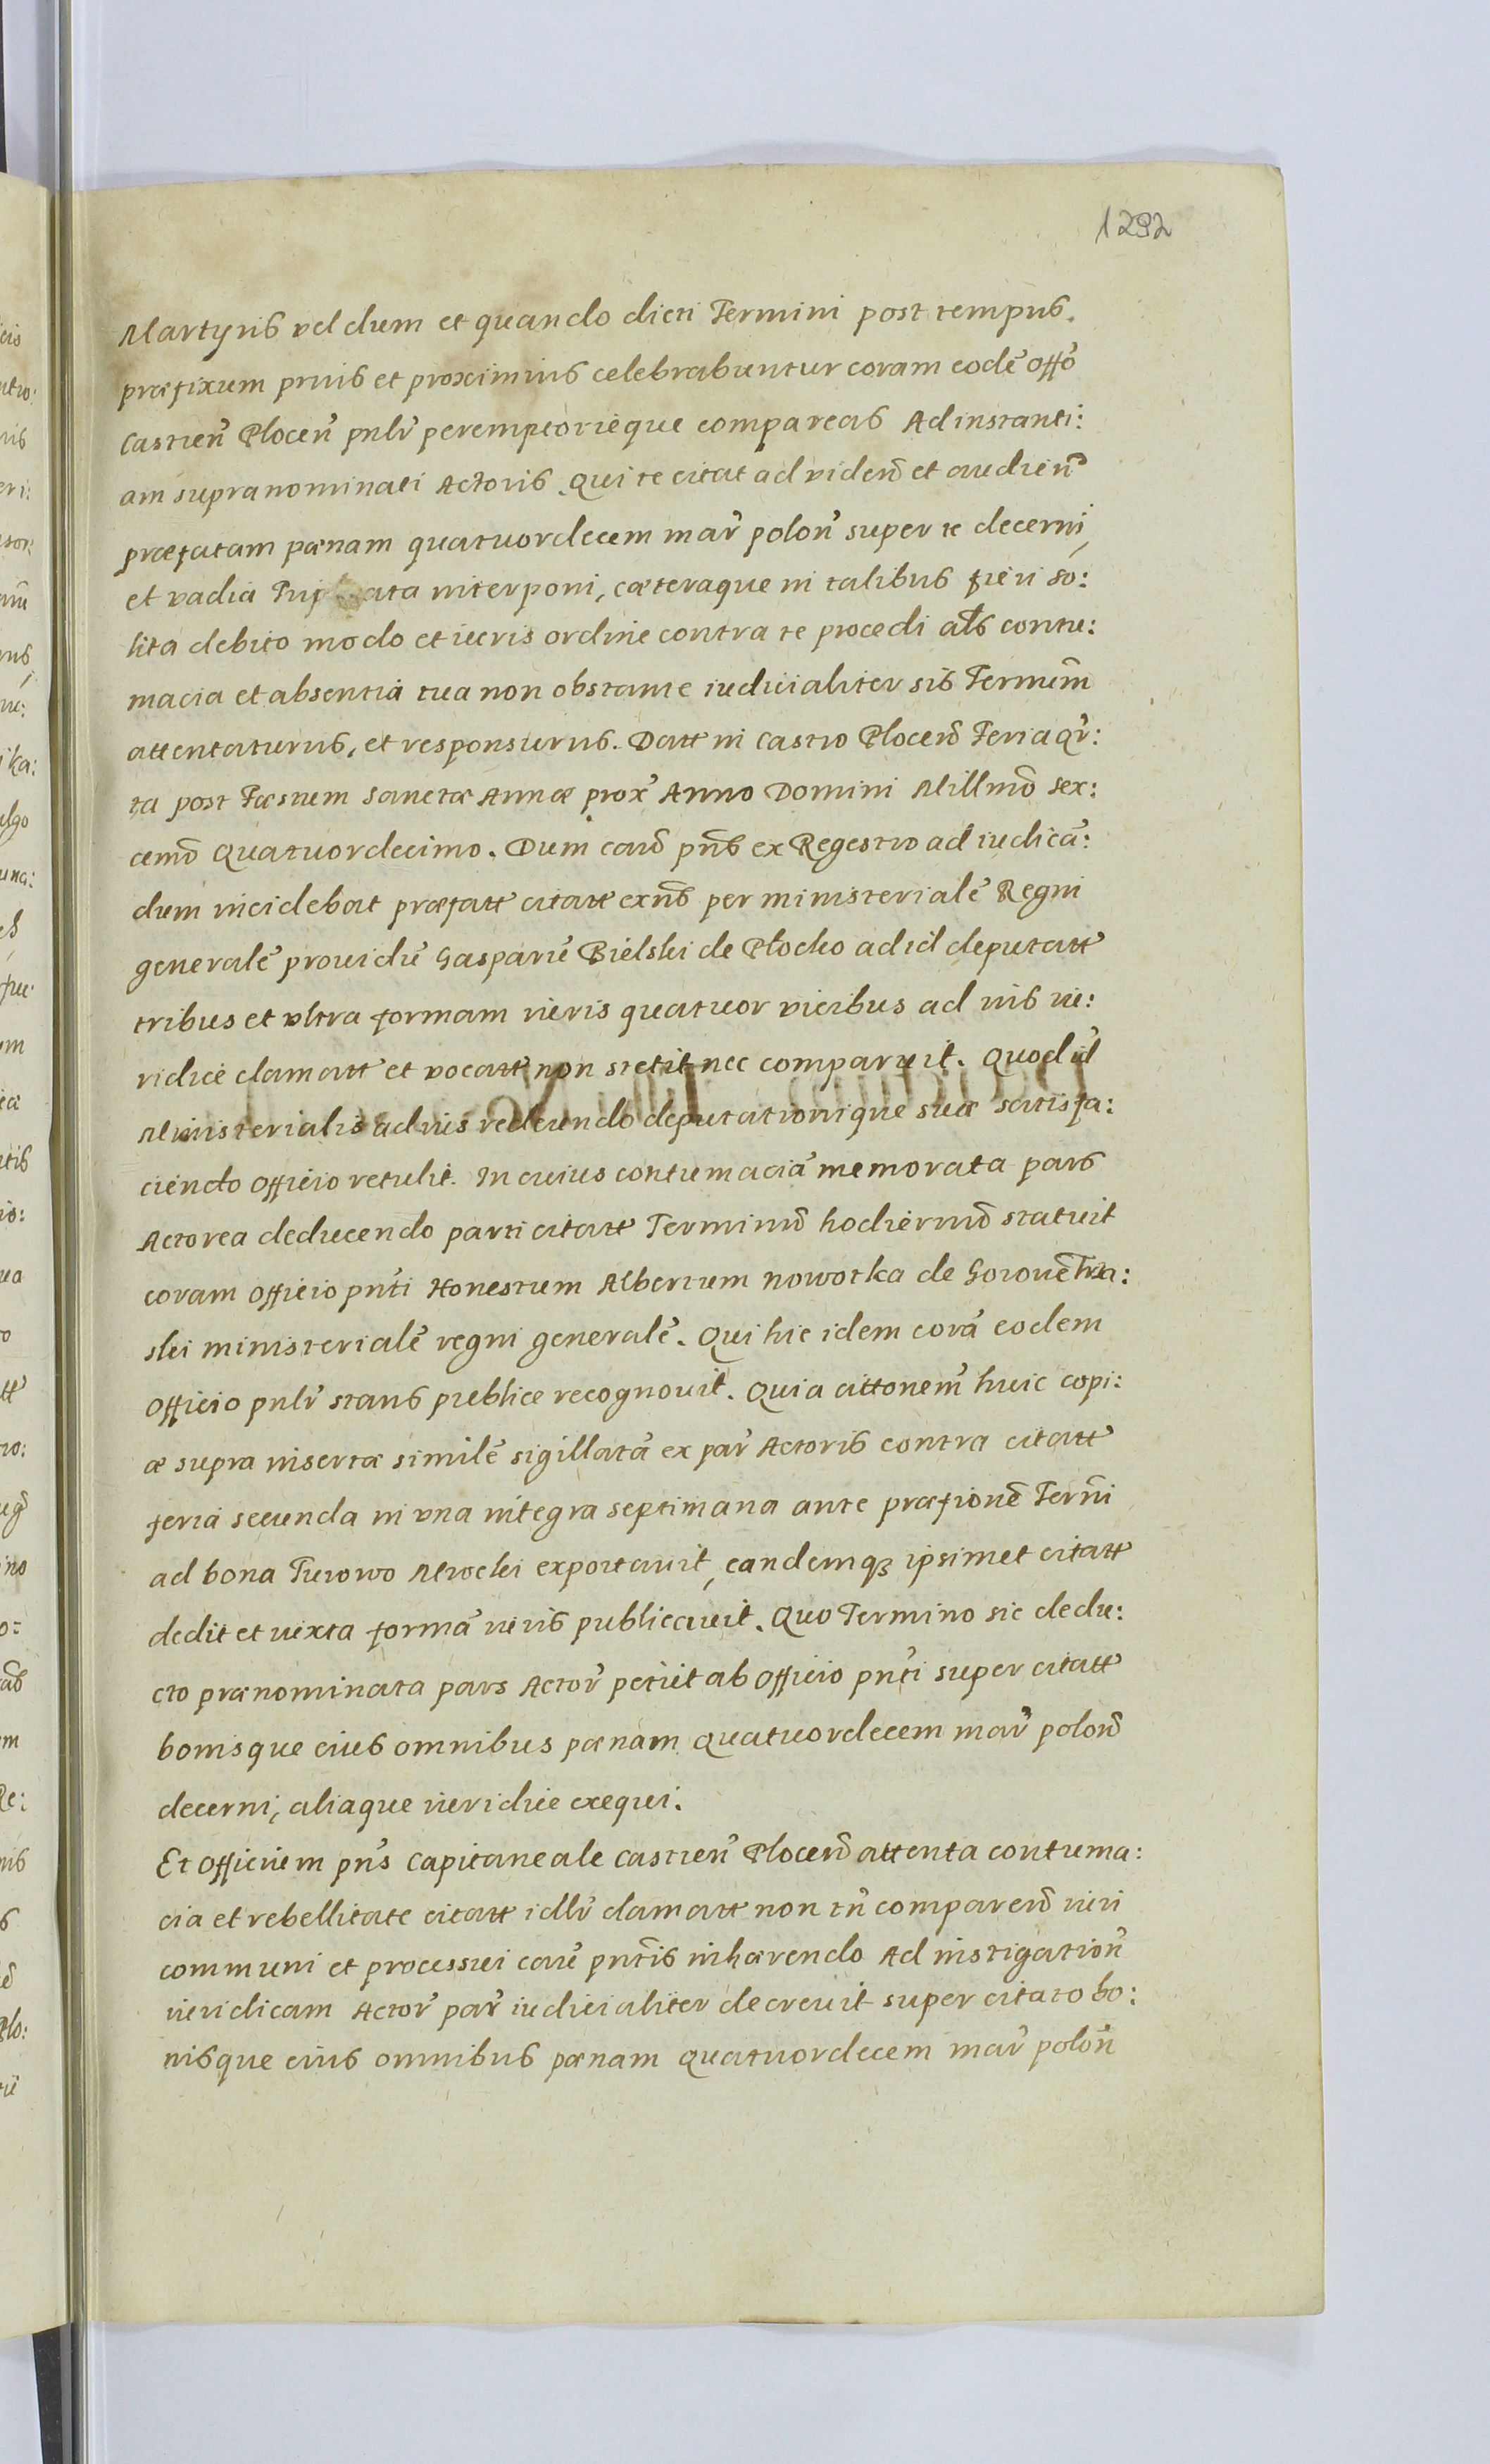 1292
Martyris vel dum et quando dicti Termini post tempus.
præfixum prius et proximius celebrabuntur coram eodē offō
Castren̄ Plocen̄ pnlr̄ peremptorièque compareas Ad instanti:
am supranominati Actoris. Qui te citat ad viden̄d et audien̄d
præfatam pænam quatuordecem mar̄ polon̄ super te decerni,
et vadia interponi, cæteraque in talibus fieri so:
lita debito modo et iuris ordine contra te procedi als contu:
macia et absentia tua non obstante iudicialiter sis Termin̄m
attentaturus, et responsurus. Datt in Castro Plocen̄ Feria qr̄:
ta post Fæstum Sanctæ Annæ prox̄ Anno Domini Millmō sex:
cemō Quatuordecimo. Dum caū pn̄s ex Regestro ad iudicā:
dum incidebat præfatt citatt exn̄s per ministerialē Regni
generalē prouidū Gasparū Bielski de Płocko ad id deputatt
tribus et vltra formam iuris quatuor vicibus ad iūs iu:
ridicè clamatt et vocatt non stetit nec comparuit. Quod id
Ministerialis ad iūs redeundo deputationique suæ satisfa:
ciendo officio retulit. In cuius contumaciā memorata pars
Actorea deducendo parti citatt Terminū hodiernū statuit
coram officio pn̄ti Honestum Albertum Nowotka de
ski ministerialē regni generalē. Qui hic idem corā eodem
officio pnlr̄ stans publice recognouit. Quia cittonem̄ huic copi:
æ supra insertæ similē sigillatā ex par̄ Actoris contra citatt
feria secunda in vna integra septimana ante præfionē Terni
ad bona Turowo Mrocki exportauit, eandemqȝ ipsimet citatt
dedit et iuxta formā iuris publicauit. Quo Termino sic dedu:
cto prænominata pars Actor̄ petiit ab officio pn̄ti super citatt
bonisque eius omnibus pænam Quatuordecem mar̄ polon̄
decerni, aliaque iuridice exequi.
Et Officium pn̄s Capitaneale castren̄ Plocen̄ attenta contuma:
cia et rebellitate citatt idlr̄ clamatt non tn̄ comparen̄ iuri
communi et processui caūe pn̄tis inhærendo Ad instigation̄
iuridicam Actor̄ par̄ iudicialiter decreuit super citato bo:
nisque eius omnibus pænam Quatuordecem mar̄ polon̄